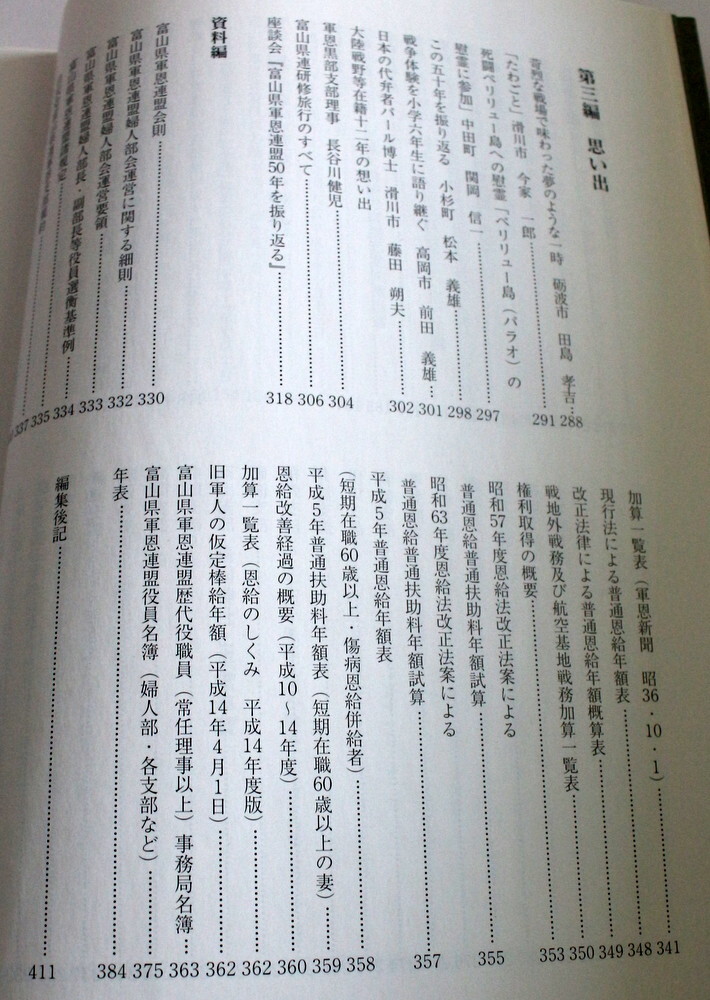 第三編　思い出
苛烈な戦場で味わった夢のような一時　砺波市　田島　孝吉…288
「たわごと」滑川市　今家　一郎……291
死闘ペリリュー島への慰霊「ペリリュー島（パラオ）の
慰霊に参加」中田町　関岡　信一……297
この五十年を振り返る　小杉町　松本　義雄……298
戦争体験を小学六年生に語り継ぐ　高岡市　前田　義雄…301
日本の代弁者パール博士　滑川市　藤田　朔夫……302
大陸戦野等在籍十二年の想い出
軍恩黒部支部理事　長谷川健児……304
富山県連研修旅行のすべて……306
座談会『富山県軍恩連盟50年を振り返る』……318
資料編
富山県軍恩連盟会則……330
富山県軍恩連盟婦人部会運営に関する細則……332
富山県軍恩連盟婦人部会運営要領……333
富山県軍恩連盟婦人部長・副部長等役員選衡基準例……334
335
337
加算一覧表（軍恩新聞　昭36・10・1）……341
現行法による普通恩給年額表……348
改正法律による普通恩給年額概算表……349
戦地外戦務及び航空基地戦務加算一覧表…350
権利取得の概要……353
昭和57年度恩給法改正法案による
普通恩給普通扶助料年額試算……355
昭和63年度恩給法改正法案による
普通恩給普通扶助料年額試算……357
平成5年普通恩給年額表
（短期在職60歳以上・傷病恩給併給者）……358
平成5年普通扶助料年額表（短期在職60歳以上の妻）…359
恩給改善経過の概要（平成10～14年度）……360
加算一覧表（恩給のしくみ　平成14年度版）……362
旧軍人の仮定棒給年額（平成14年4月1日）……362
富山県軍恩連盟歴代役職員（常任理事以上）事務局名簿…363
富山県軍恩連盟役員名簿（婦人部・各支部など）……375
年表……384
編集後記……411